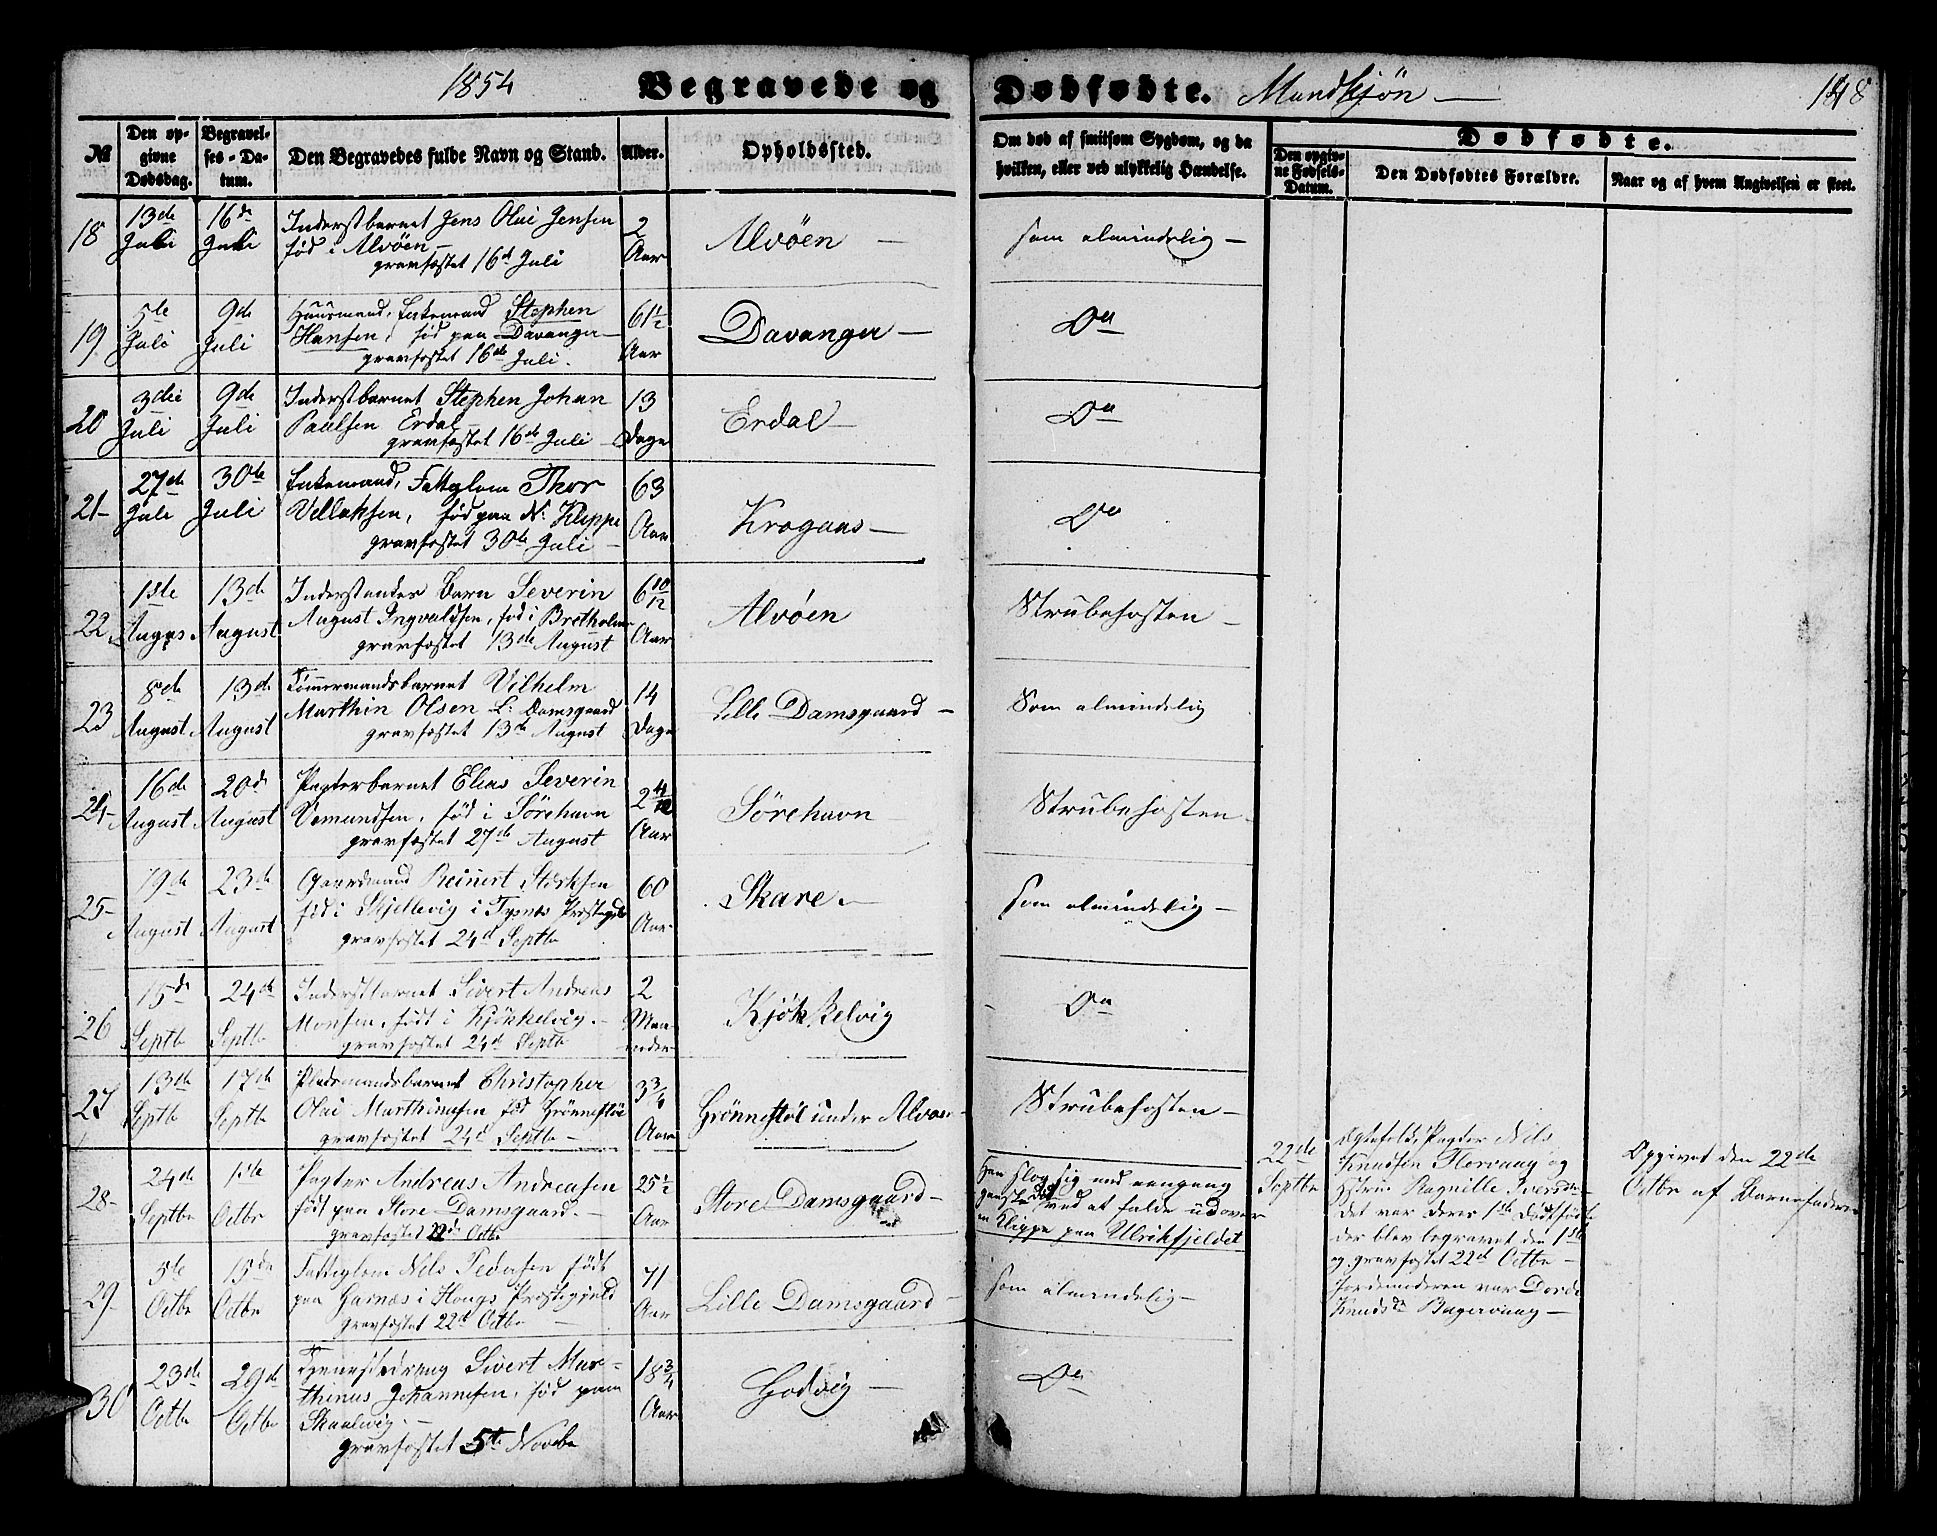 1854 Begravede og Dødfødte. Mandkjøn — 148
№
Den op-
givne
Dødsdag.
Begravel-
ses-Da-
tum.
Den Begravedes fulde Navn og Stand.
Alder.
Opholdssted.
Om død af smitsom Sygdom, og da
hvilken, eller ved ulykkelig Hændelse.
Dødfødte.
Den opgiv-
ne Fødsels-
Datum.
Den Dødfødtes Forældre.
Naar og af hvem Angivelsen er skeet.
18 13de Juli 16de Juli Inderstbarnet Jens Olai Jensen 2 Aar Alvöen — som almindelig —
fød i Alvöen —
gravfæstet 16de Juli
19 5te Juli 9de Juli Huusmand, Enkemand Stephen 61½ Aar Davanger — Do
Hansen, fød paa Davanger —
gravfæstet 16de Juli.
20 3die Juli 9de Juli Inderstbarnet Stephen Johan 13 Dage Erdal — Do
Paulsen Erdal —
gravfæstet 16de Juli —
21 27de Juli 30te Juli Enkemand, Fattiglem Thor 63 Aar Krogaas — Do
Vellaksen, fød paa N: Kleppe
gravfæstet 30te Juli —
22 1ste August 13de August Inderstandes Barn Severin 6 10/12 Aar Alvöen Strubehosten —
August Ingvaldsen, fød i Bretholmen
gravfæstet 13de August
23 8de August 13de August Tömmermandsbarnet Vilhelm 14 Dage Lille Damsgaard — Som almindelig
Marthin Olsen L: Damsgaard
gravfæstet 13de August
24 16de August 20de August Pagterbarnet Elias Severin 2 4/12 Aar Sörehavn Strubehosten —
Vemundsen, fød i Sörehavn
gravfæstet 27de August
25 19de August 23de August Gaardmand Reinert Störksen 60 Aar Skare — som almindelig —
fød i Skjellevig i Tysnæs Præstegjeld
gravfæstet 24de Septbr
26 15de Septbr 24de Septbr Inderstbarnet Sivert Andreas 2 Maaneder Kjökkelvig Do
Monsen, født i Kjökkelvig —
gravfæstet 24de Septbr
27 13de Septbr 17de Septbr Pladsmandsbarnet Christopher 3¾ Aar Grönnestöl under Alvöen — Strubehosten —
Olai Marthinusen fød Grönnestöl
gravfæstet 24de Septbr —
28 24de Septbr 1ste Octbr Pagter Andreas Andreasen 25½ Aar Store Damsgaard — Han slog sig med eengang
født paa Store Damsgaard —
gravfæstet 22de Octbr
ved at falde udover
en Klippe paa Ulrikfjeldet
29 5te Octbr 15de Octbr Fattiglem Nils Pedersen født 71 Aar Lille Damsgaard — som almindelig —
paa Garnæs i Hougs Præstegjeld
gravfæstet 22de Octbr —
30 23de Octbr 29de Octbr Tjenestedreng Sivert Mar- 18¾ Aar Godvig — Do
thinus Johannesen, fød paa
Skaalevig —
gravfæstet 5te Novbr
22de
Septbr
Ægtefolk, Pagter Nils
Knudsen Florvaag og
Hstru Ragnille Iversdr —
det var deres 1ste Dødfødte
der blev begravet den 1ste
og gravfæstet 22de Octbr —
Jordemoderen var Dorde
Knudsdr Bagervaag —
Opgivet den 22de
Octbr af Barnefaderen